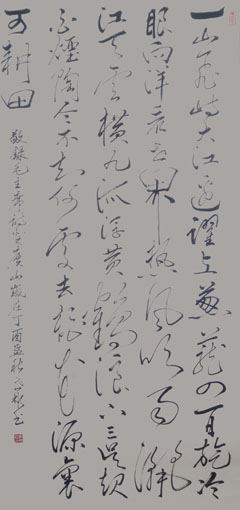 一山飛峙大江邊躍上葱蘢四百旋冷
眼向洋看世界熱風吹雨灑
江天雲橫九派浮黃鶴浪下三吳起
白煙陶令不知何處去桃花源裏
可耕田
敬録毛主席詩登廬山歲在丁酉孟秋書